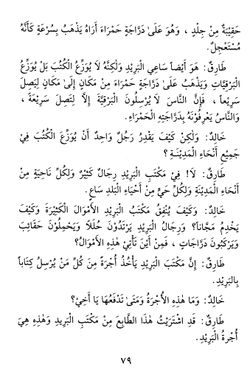 حَقِيْبَةٌ مِنْ جِلْدٍ ، وَهُوَ عَلَىٰ دَرَّاجَةٍ حَمْرَاءَ أَرَاهُ يَذْهَبُ بِسُرْعَةٍ كَأَنَّهُ
مُسْتَعْجِلٌ.
طَارِقٌ: هُوَ أَيْضًا سَاعِي الْبَرِيْدِ وَلٰكِنَّهُ لَا يُوَزِّعُ الْكُتُبَ بَلْ يُوَزِّعُ
الْبَرْقِيَّاتِ وَيَذْهَبُ عَلَىٰ دَرَّاجَةٍ حَمْرَاءَ مِنْ مَكَانٍ إِلَىٰ مَكَانٍ لِيَصِلَ
سَرِيْعًا ، فَإِنَّ النَّاسَ لَا يُرْسِلُوْنَ الْبَرْقِيَّةَ إِلَّا لِتَصِلَ سَرِيْعَةً ،
وَالنَّاسُ يَعْرِفُوْنَهُ بِدَرَّاجَتِهِ الْحَمْرَاءِ.
خَالِدٌ: وَلٰكِنْ كَيْفَ يَقْدِرُ رَجُلٌ وَاحِدٌ أَنْ يُوَزِّعَ الْكُتُبَ فِيْ
جَمِيْعِ أَنْحَاءِ الْمَدِيْنَةِ ؟
طَارِقٌ: لَا! فِيْ مَكْتَبِ الْبَرِيْدِ رِجَالٌ كَثِيْرٌ وَلِكُلِّ نَاحِيَةٍ مِنْ
أَنْحَاءِ الْمَدِيْنَةِ وَلِكُلِّ حَيٍّ مِنْ أَحْيَاءِ الْبَلَدِ سَاعٍ.
خَالِدٌ: وَكَيْفَ يُنْفِقُ مَكْتَبُ الْبَرِيْدِ الْأَمْوَالَ الْكَثِيْرَةَ وَكَيْفَ
يَخْدِمُ مَجَّانًا؟ وَرِجَالُ الْبَرِيْدِ يَرْتَدُوْنَ حُلَلًا وَيَحْمِلُوْنَ حَقَائِبَ
وَيَرْكَبُوْنَ دَرَّاجَاتٍ ، فَمِنْ أَيْنَ تَأْتِيْ هٰذِهِ الْأَمْوَالُ؟
طَارِقٌ: إِنَّ مَكْتَبَ الْبَرِيْدِ يَأْخُذُ أُجْرَةً مِنْ كُلِّ مَنْ يُرْسِلُ كِتَابًا
بِالْبَرِيْدِ.
خَالِدٌ: وَمَا هٰذِهِ الْأُجْرَةُ وَمَتَىٰ تَدْفَعُهَا يَا أَخِيْ؟
طَارِقٌ: قَدِ اشْتَرَيْتُ هٰذَا الطَّابِعَ مِنْ مَكْتَبِ الْبَرِيْدِ وَهٰذِهِ هِيَ
أُجْرَةُ الْبَرِيْدِ.
٧٩